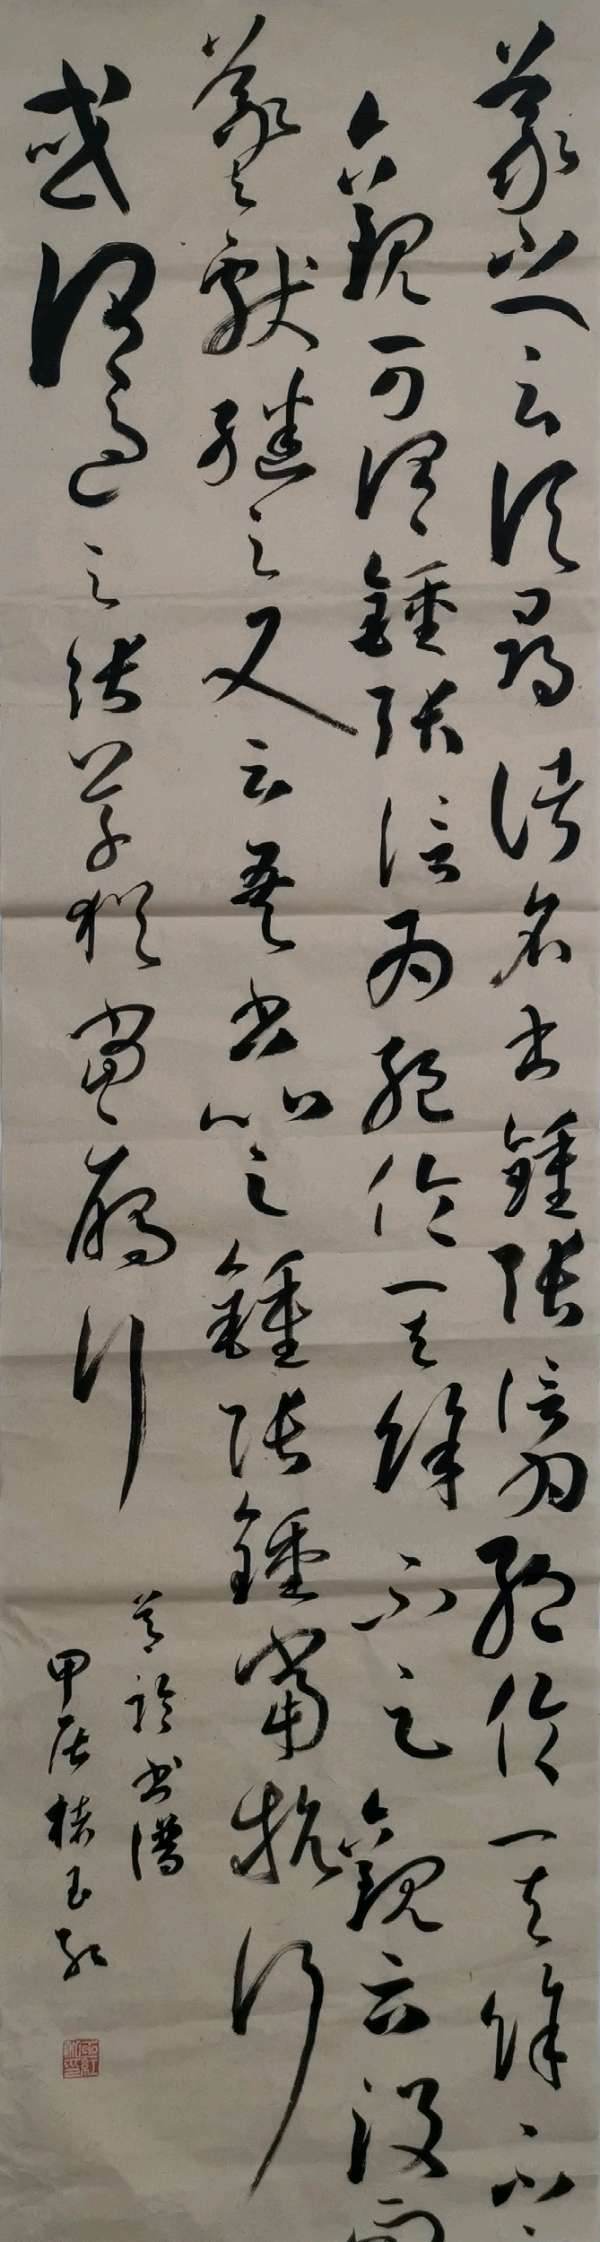 羲云頃尋諸名書鍾張信為絕倫其餘不足
觀可謂鍾張信為絕倫其餘不足觀云沒而
羲獻繼之又云吾書比之鍾張鍾當抗行
或謂過之張草猶當雁行
節臨書譜
甲辰玉紅